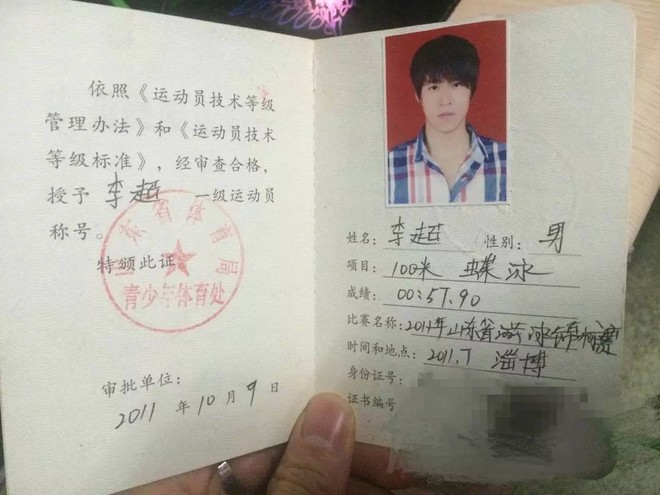 依照《运动员技术等级
管理办法》和《运动员技术
等级标准》，经审查合格，
授予 李超 一级运动员
称号。
特颁此证
山东省体育局
青少年体育处
审批单位：
2011 年 10 月 9 日
姓名：李超 性别：男
项目：100米 蝶泳
成绩：00:57.90
比赛名称：2011年山东省游泳锦标赛
时间和地点：2011.7 淄博
身份证号：
证书编号